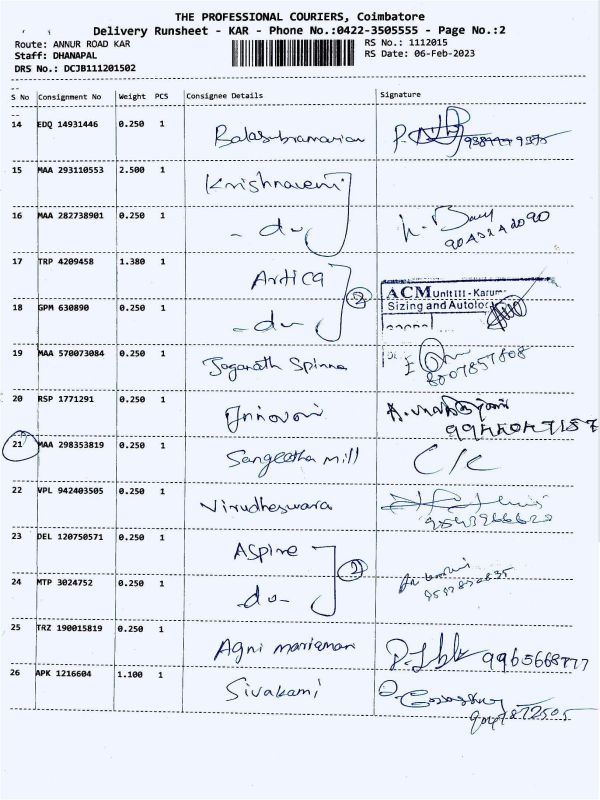 THE PROFESSIONAL COURIERS, Coimbatore
Delivery Runsheet - KAR - Phone No.:0422-3505555 - Page No.:2
Route: ANNUR ROAD KAR RS No.: 1112015
Staff: DHANAPAL RS Date: 06-Feb-2023
DRS No.: DCJB111201502
S No Consignment No Weight PCS Consignee Details Signature
14 EDQ 14931446 0.250 1 Balasubramanian
15 MAA 293110553 2.500 1 Krishnaveni
16 MAA 282738901 0.250 1 - do -
17 TRP 4209458 1.380 1 Artica
2
ACM Unit III - Karum
18 GPM 630890 0.250 1 - do -
Sizing and Autoloc
19 MAA 570073084 0.250 1 Jaganath Spinna
8007857808
20 RSP 1771291 0.250 1 Innovoni
21 MAA 298353819 0.250 1 Sangeetha mill C/C
22 VPL 942403505 0.250 1 Virudheswara
23 DEL 120750571 0.250 1 Aspire
2
24 MTP 3024752 0.250 1 do -
25 TRZ 190015819 0.250 1 Agni mariaman 9965668777
26 APK 1216604 1.100 1 Sivakami